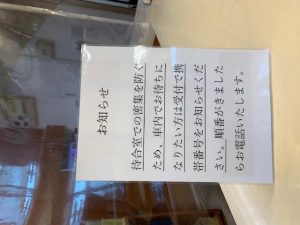 お知らせ
待合室での密集を防ぐ
ため、車内でお待ちに
なりたい方は受付で携
帯番号をお知らせくだ
さい。順番がきました
らお電話いたします。